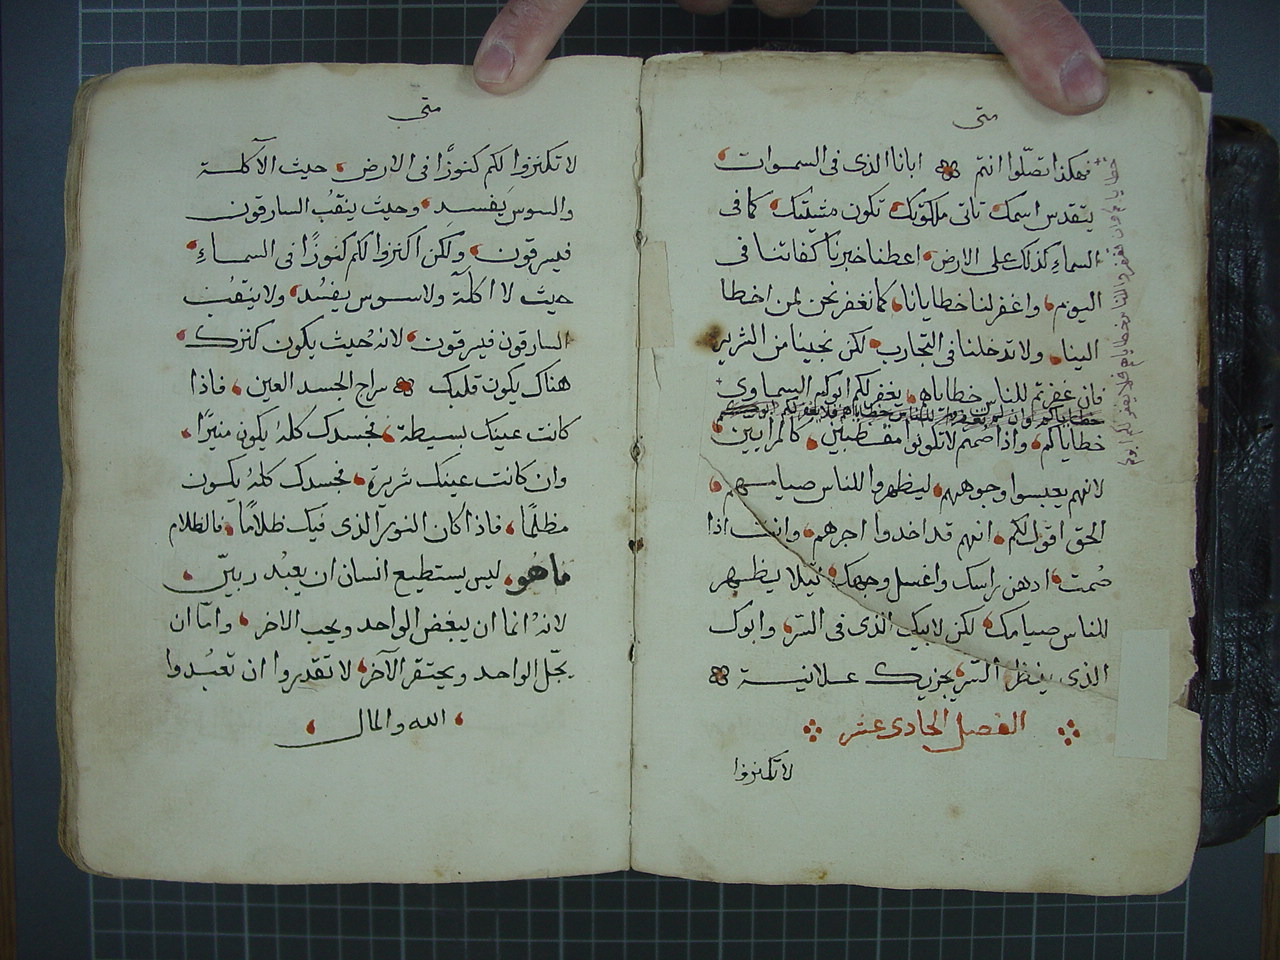 متى
فهكذا تصلّوا انتم ابانا الذى فى السموات
يتقدس اسمك تاتى ملكوتك تكون مشيتك كما فى
السماءِ كذلك على الارض اعطنا خبزنا كفاتنا فى
اليوم واغفر لنا خطايانا كما نغفر نحن لمن اخطا
الينا ولا تدخلنا فى التجارب لكن نجينا من الشرير
فان غفرتم للناس خطاياهم يغفر لكم ابوكم السماوى
خطاياكم واذا صمتم لا تكونوا مقطبين كالمرايين
لانهم يعبسوا وجوههم ليظهروا للناس صيامهم
الحق اقول لكم انهم قد اخدوا اجرهم وانت اذا
صُمت ادهن راسك واغسل وجهك ليلا يظهر
للناس صيامك لكن لابيك الذى فى السّر وابوك
الذى ينظر السّر يجزيك علانية
الفصل الحادى عشر
لا تكنزوا
خطاياكم وان لم تغفروا للناس خطاياهم فلا يغفر لكم ابوكم
متى
لا تكنزوا لكم كنوزًا فى الارض حيث الآكلة
والسوس يفسد وحيث ينقُب السارقون
فيسرقون ولكن اكنزوا لكم كنوزًا فى السماءِ
حيث لا اكلة ولا سوس يفسُد ولا ينقُب
السارقون فيسرقون لانهُ حيث يكون كنزك
هناك يكون قلبك سراج الجسد العين فاذا
كانت عينك بسيطة فجسدك كلهُ يكون منيرًا
وان كانت عينك شريرة فجسدك كلهُ يكون
مظلمًا فاذا كان النور الذى فيك ظلامًا فالظلام
ما هُو ليس يستطيع انسان ان يعبُد ربيّن
لانهُ انما ان يبغض الواحد ويحب الاخر وامّا ان
يجّل الواحد ويحتقر الآخر لا تقديروا ان تعبُدوا
الله والمال